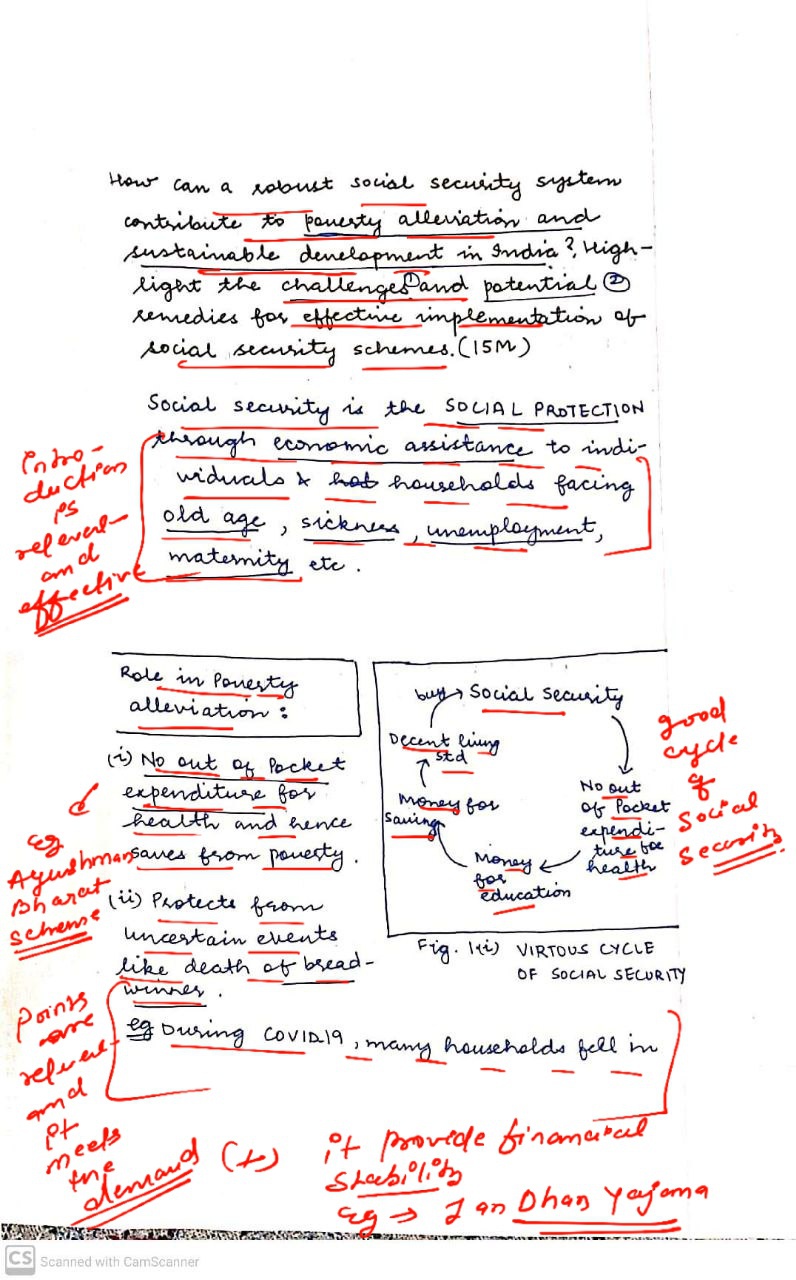 How can a robust social security system
contribute to poverty alleviation and
sustainable development in India? High-
light the challenges ① and potential ②
remedies for effective implementation of
social security schemes. (15M)
Social security is the SOCIAL PROTECTION
through economic assistance to indi-
viduals & households facing
old age, sickness, unemployment,
maternity etc.
Intro-
duction
is
relevent
and
effective
Role in Poverty
alleviation :
(i) No out of Pocket
expenditure for
health and hence
saves from poverty.
eg
Ayushman
Bharat
scheme
(ii) Protects from
uncertain events
like death of bread-
winner.
eg During COVID19, many households fell in
Social Security
No out
of Pocket
expendi-
ture for
health
Money
for
education
Money for
saving
Decent living
std
Fig. 1(i) VIRTOUS CYCLE
OF SOCIAL SECURITY
good
cycle
of
Social
Security
Points
are
relevent
and
it
meets
the
demand
(+) it provide financial
Stability
eg → Jan Dhan Yojana
CS Scanned with CamScanner